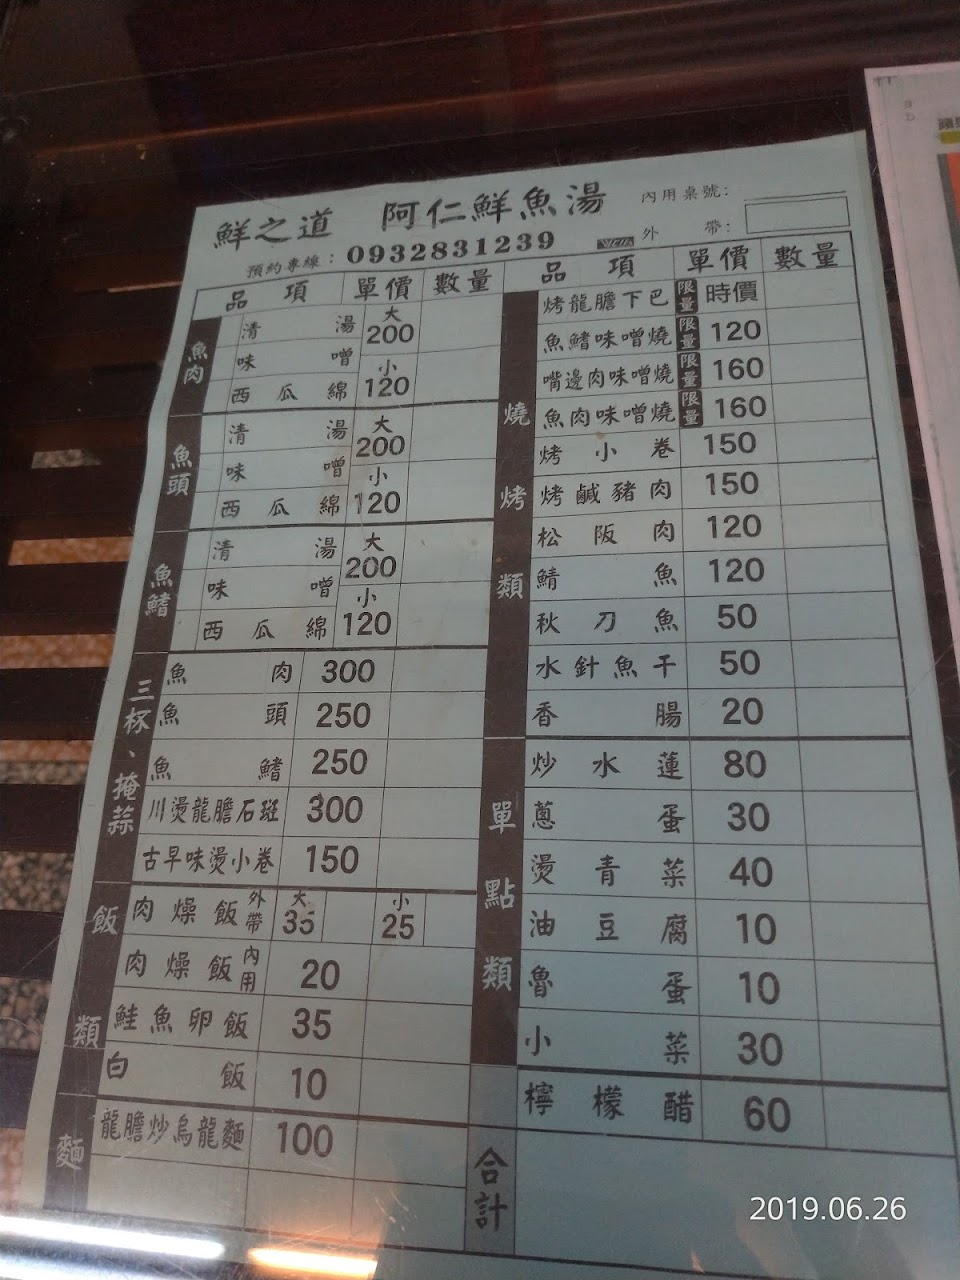 鮮之道 阿仁鮮魚湯
內用桌號:
預約專線:0932831239
外帶:
品項 單價 數量
魚肉
清湯 大 200
味噌 小
西瓜綿 120
魚頭
清湯 大 200
味噌 小
西瓜綿 120
魚鰭
清湯 大 200
味噌 小
西瓜綿 120
三杯、掩蒜
魚肉 300
魚頭 250
魚鰭 250
川燙龍膽石斑 300
古早味燙小卷 150
飯類
肉燥飯 外帶 大 35 小 25
肉燥飯 內用 20
鮭魚卵飯 35
白飯 10
麵
龍膽炒烏龍麵 100
品項 單價 數量
燒烤類
烤龍膽下巴 限量 時價
魚鰭味噌燒 限量 120
嘴邊肉味噌燒 限量 160
魚肉味噌燒 限量 160
烤小卷 150
烤鹹豬肉 150
松阪肉 120
鯖魚 120
秋刀魚 50
水針魚干 50
香腸 20
單點類
炒水蓮 80
蔥蛋 30
燙青菜 40
油豆腐 10
魯蛋 10
小菜 30
檸檬醋 60
合計
2019.06.26